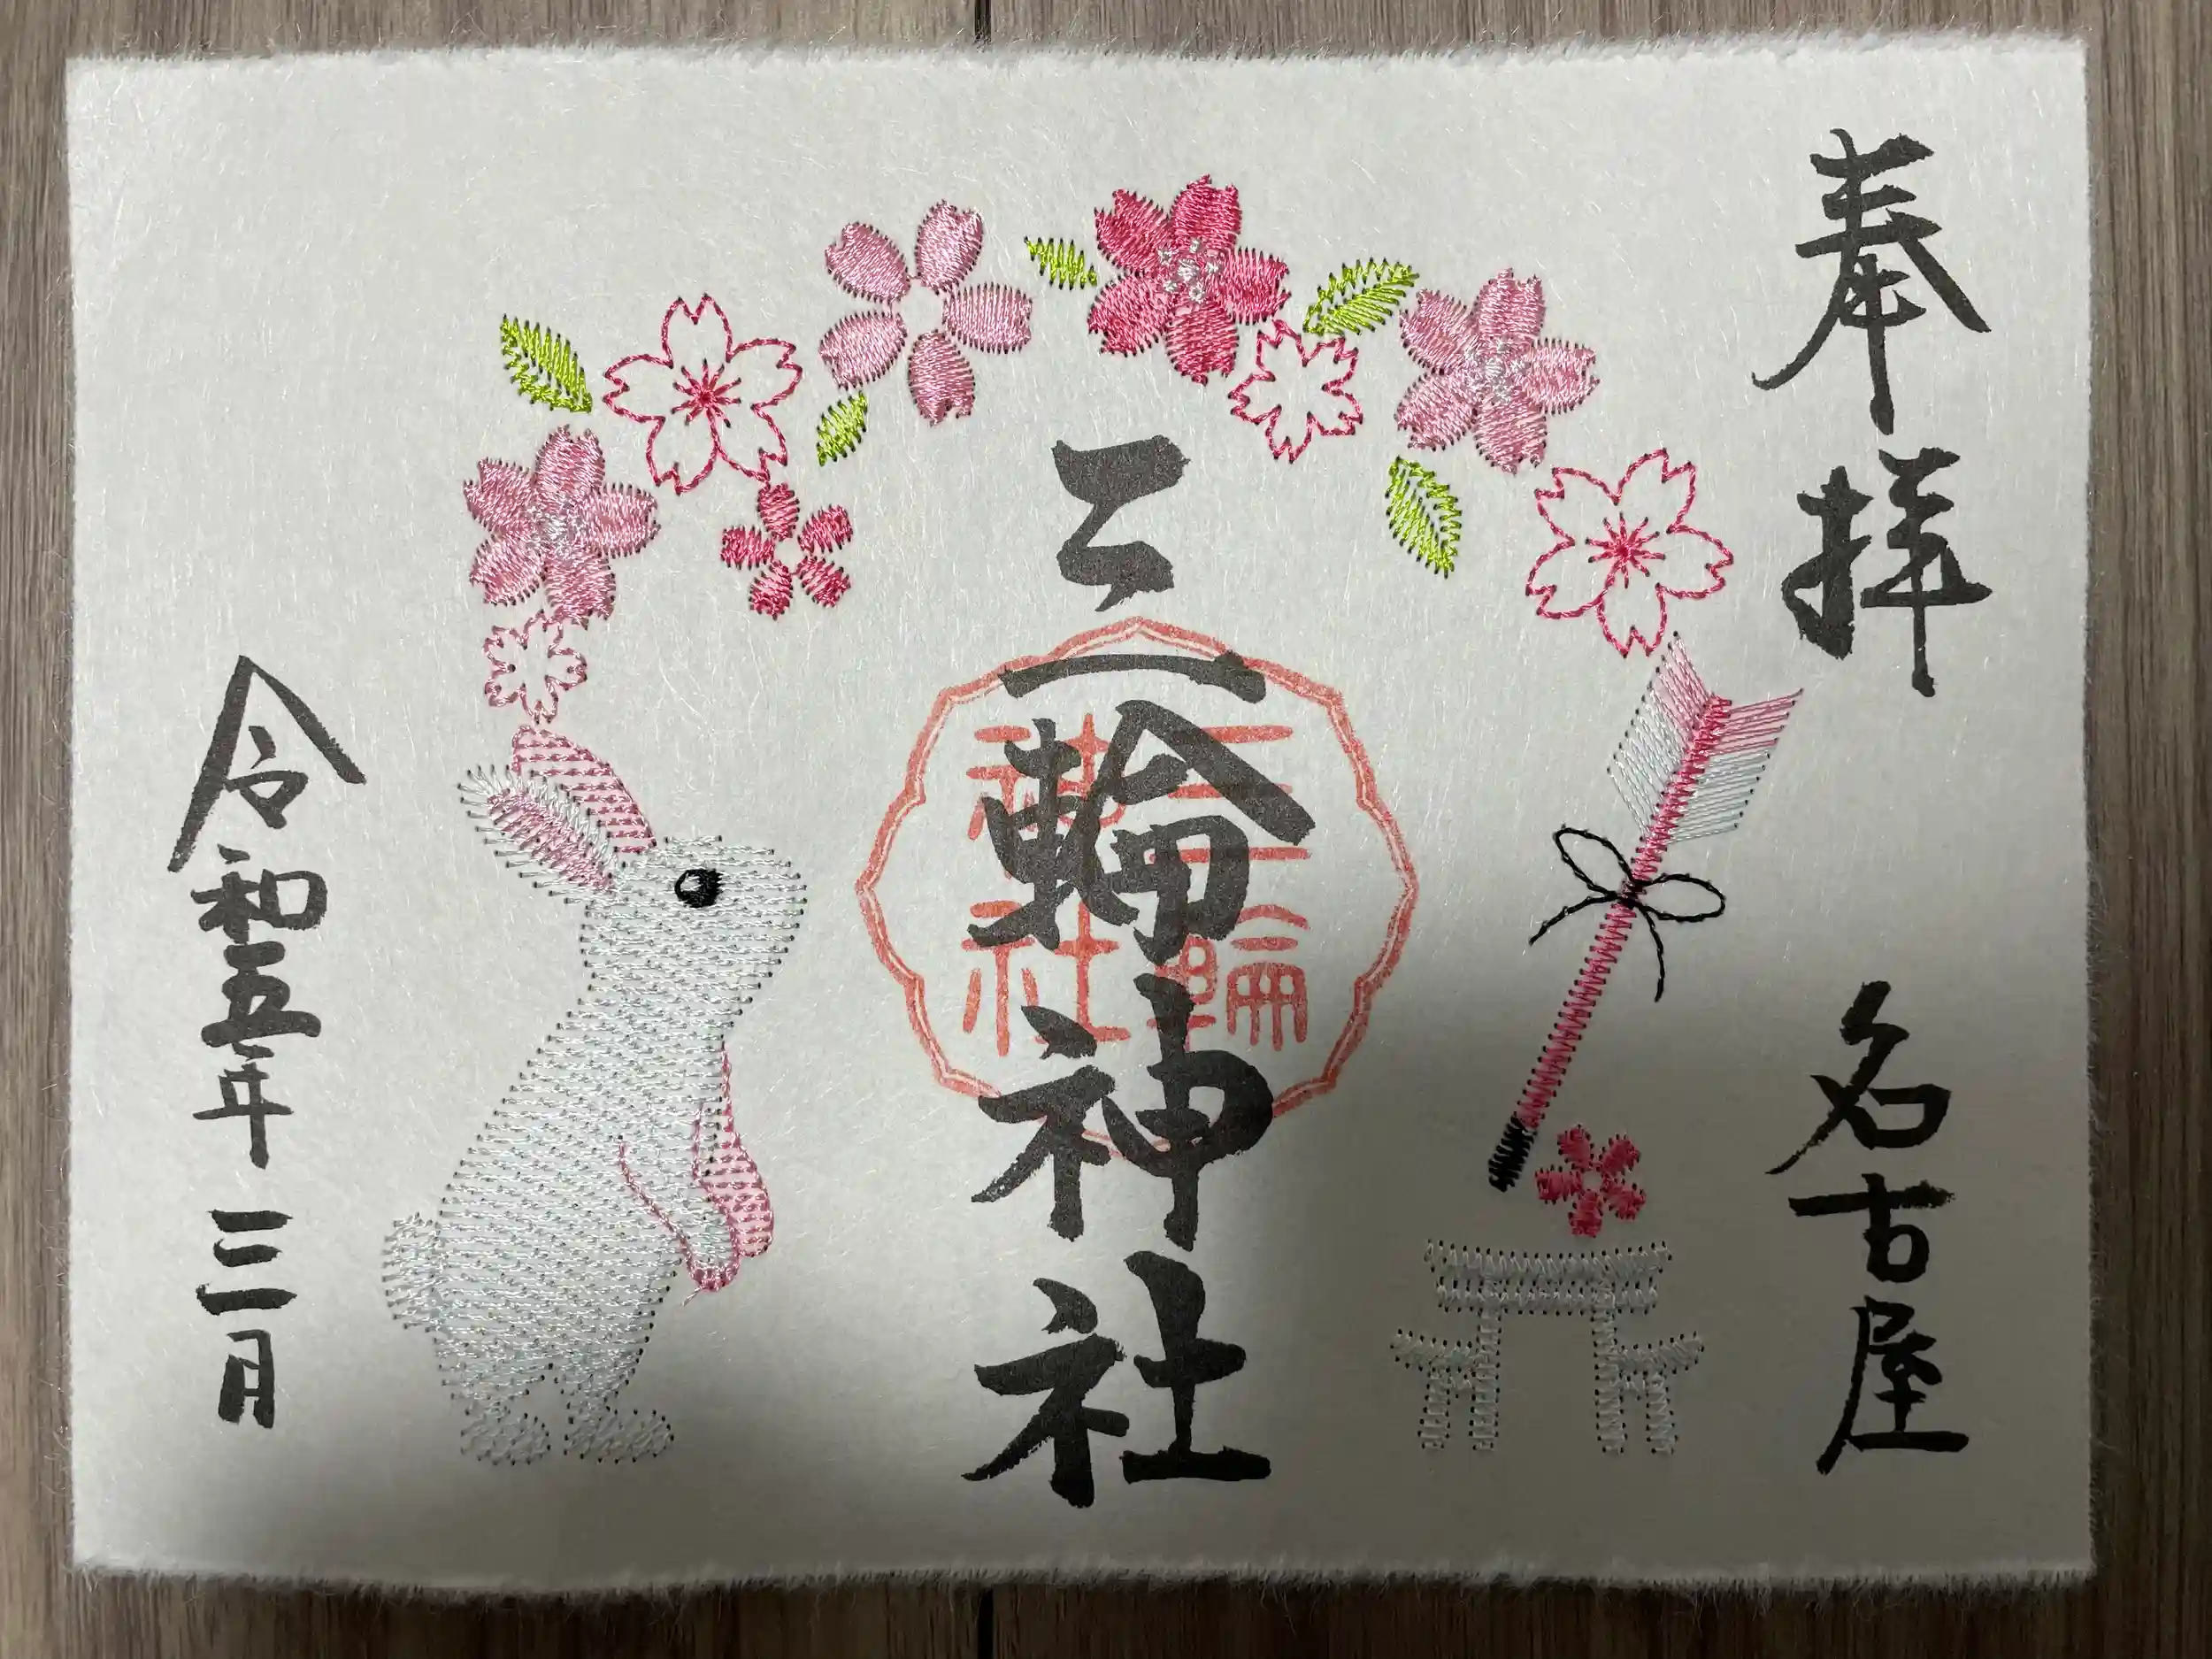 奉拝
名古屋
三輪神社
三輪神社
令和五年三月